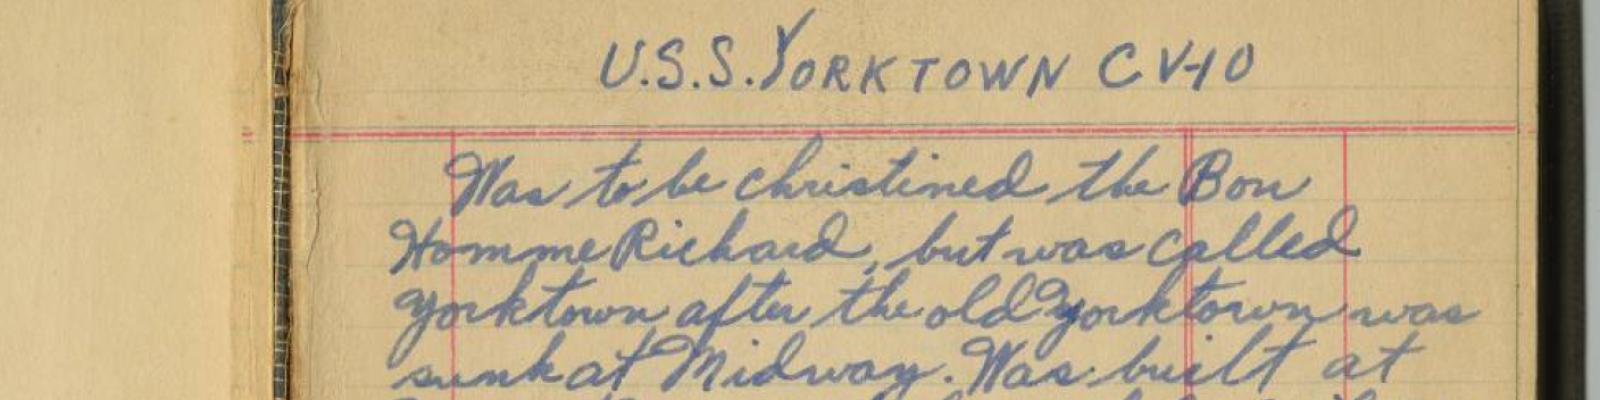 U.S.S. YORKTOWN CV-10
Was to be christined the Bon
Homme Richard, but was called
Yorktown after the old Yorktown was
sunk at Midway. Was built at